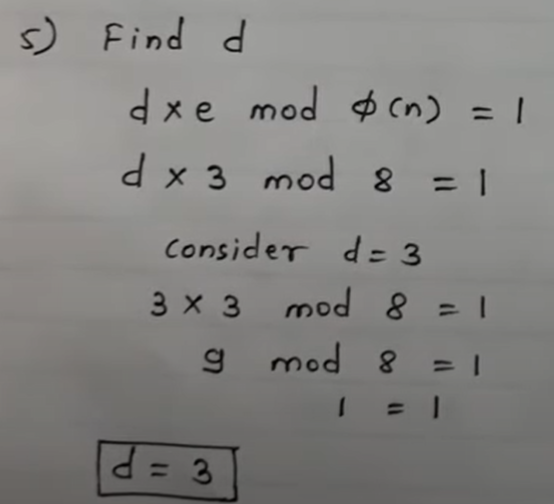 5) Find d
d x e mod ϕ(n) = 1
d x 3 mod 8 = 1
consider d = 3
3 x 3 mod 8 = 1
9 mod 8 = 1
1 = 1
d = 3